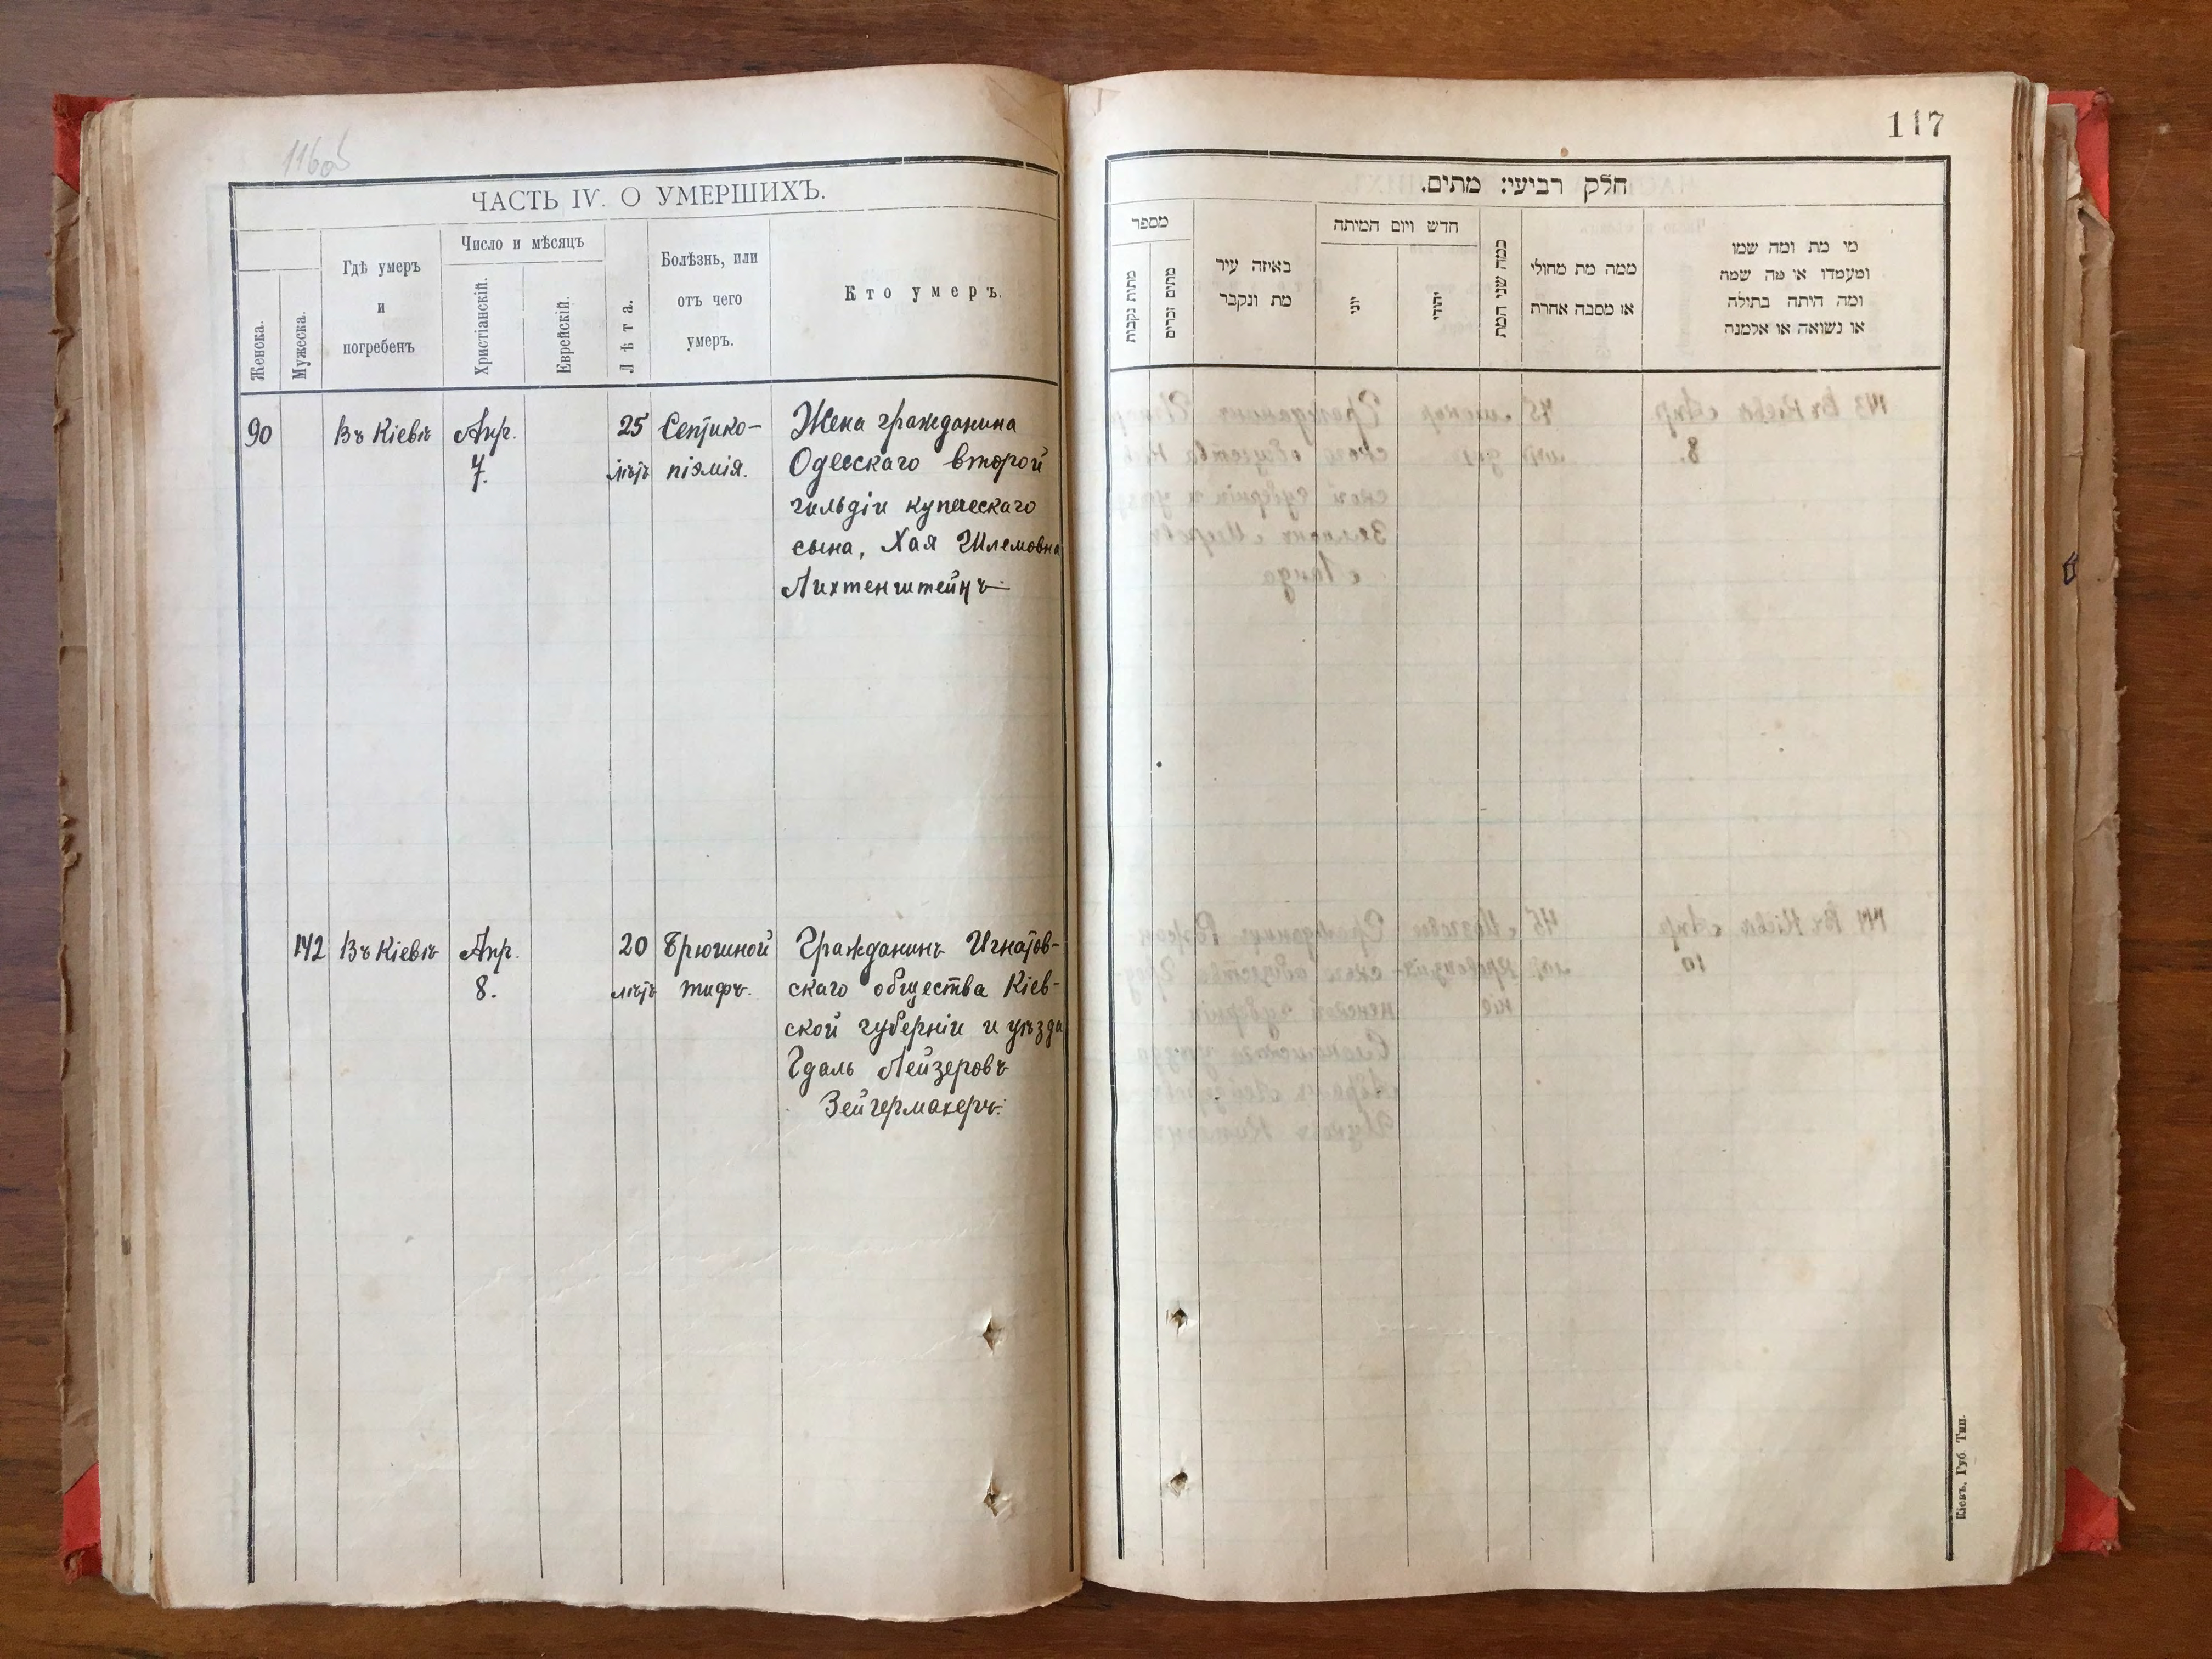 116об
ЧАСТЬ IV. О УМЕРШИХЪ.
Женска.
Мужеска.
Гдѣ умеръ
и
погребенъ
Число и мѣсяцъ
Христіанскій.
Еврейскій.
Лѣта.
Болѣзнь, или
отъ чего
умеръ.
Кто умеръ.
90 Въ Кіевѣ Апр. 25 Септико- Жена гражданина
7. лѣтъ піэмія. Одесскаго второй
гильдіи купеческаго
сына, Хая Шлемовна
Лихтенштейнъ
142 Въ Кіевѣ Апр. 20 Брюшной Гражданинъ Игнатов-
8. лѣтъ тифъ. скаго общества Кіев-
ской губерніи и уѣзда
Гдаль Лейзеровъ
Зейгермахеръ.
117
חלק רביעי: מתים.
מספר
מתות נקבות
מתים זכרים
באיזה עיר
מת ונקבר
חדש ויום המיתה
יוני
יהודי
כמה שני המת
ממה מת מחולי
או מסבה אחרת
מי מת ומה שמו
ומעמדו או מה שמה
ומה היתה בתולה
או נשואה או אלמנה
Кіевъ, Губ. Тип.